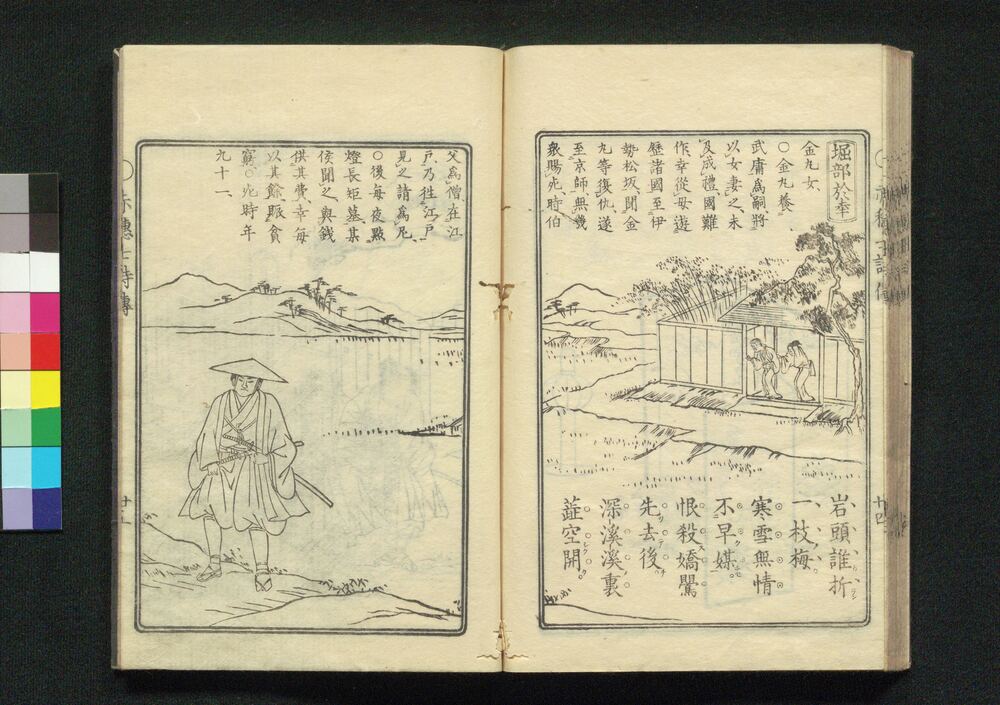 堀部於幸
金丸女
○金丸養
武庸為嗣將
以女妻之未
及成禮國難
作幸從母遊
歷諸國至伊
勢松坂聞金
丸等復仇遂
至京師無幾
衆賜死時伯
岩頭誰折
一枝梅
寒雪無情
不早媒
恨殺嬌鸎
先去後
深溪溪裏
蕋空開
父為僧在江
戸乃徃江戸
見之請為尼
○後每夜㸃
燈長矩墓某
侯聞之與錢
供其費幸每
以其餘賑貧
窮○死時年
九十一
赤穗七詩傳